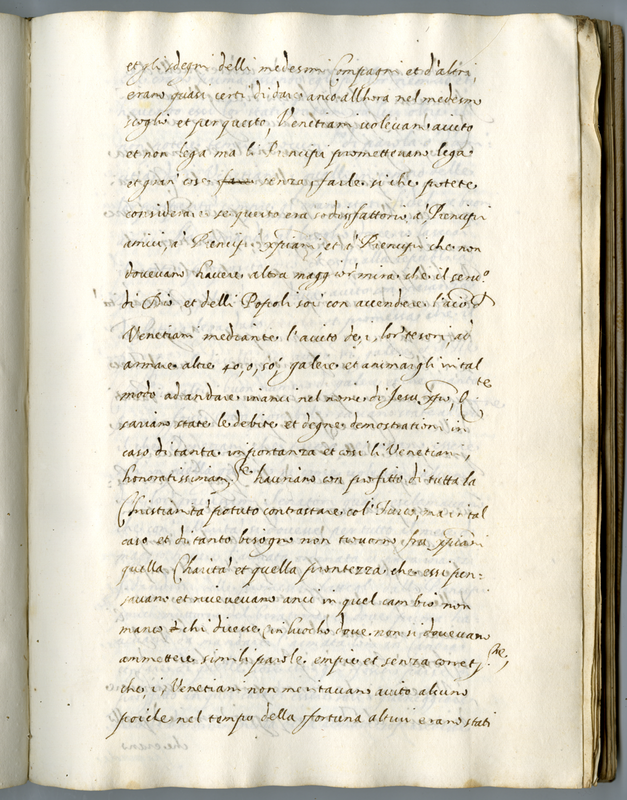 et gli sdegni delli medesmi Compagni et d'altri,
erano quasi certi di dare anco all'hora nel medesmo
scoglio et per questo, Venetiani volevano aiuto
et non lega ma li Principi promettevano lega
et gran cose fare senza farle si che potete
considerar se questo era sodisfattorio a' Principi
amici, a' Principi xpiani, et a' Principi che non
dovevano havere altra maggior mira che il servo
di Dio et delli Popoli soi con accendere
Venetiani mediante l'aiuto de i lor tesori, ad
armare altre 40, o, 50, galere et animargli in tal
modo ad andare inanci nel nome di Jesu xpo,
sariano state le debite et degne demostrationi in
caso di tanta importanza et cosi li Venetiani
honoratissimam.te hauriano con profitto di tutta la
Christianità potuto contrastare col Turco, ma in tal
caso et di tanto bisogno non trovorno fra xpiani
quella Charità et quella prontezza che essi pen=
savano et ricevevano anci in quel cambio non
manco chi dicesse in luocho dove non si dovevano
ammettere simili parole empie et senza
che i Venetiani non meritavano aiuto alcuno
poiche nel tempo della fortuna altrui erano stati
che erano